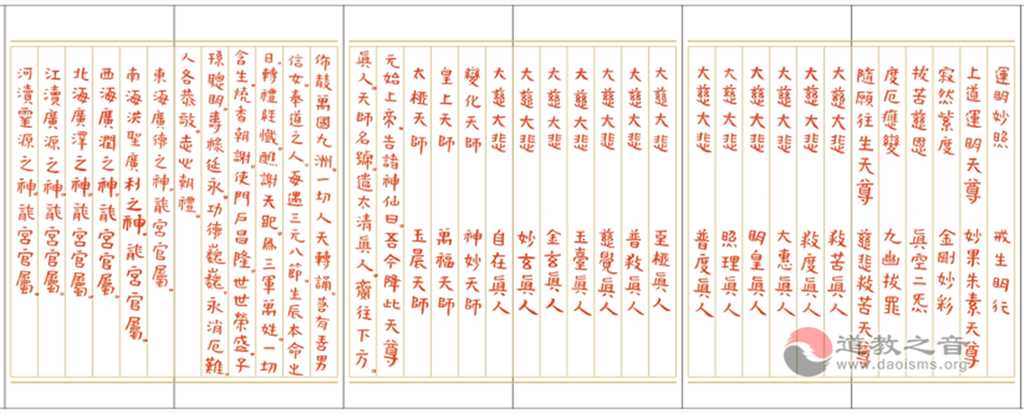 運明妙照 戒生明行
上道運明天尊 妙果朱素天尊
寂然紫度 金剛妙彩
拔苦慈恩 眞空二炁
度厄應變 九幽拔罪
隨願往生天尊 慈悲救苦天尊
大慈大悲 救苦眞人
大慈大悲 救度眞人
大慈大悲 大惠眞人
大慈大悲 明皇眞人
大慈大悲 照理眞人
大慈大悲 普度眞人
大慈大悲 至極眞人
大慈大悲 普救眞人
大慈大悲 慈覺眞人
大慈大悲 玉臺眞人
大慈大悲 金玄眞人
大慈大悲 妙玄眞人
大慈大悲 自在眞人
變化天師 神妙天師
皇上天師 萬福天師
太極天師 玉晨天師
元始上帝。告諸神仙曰。吾今降此天尊
眞人。天師名號。遣太清眞人。齎往下方。
佈散萬國九洲。一切人天轉誦。若有善男
信女。奉道之人。每遇三元八節。生辰本命之
日。轉禮經懺。醮謝天地。爲三軍萬姓。一切
含生。燒香朝謝。使門戶昌隆。世世榮盛。子
孫聰明。壽祿延永。功德巍巍。永消厄難。
人各恭敬。志心朝禮。
東海廣德之神。龍宮官屬。
南海洪聖廣利之神。龍宮官屬。
西海廣潤之神。龍宮官屬。
北海廣澤之神。龍宮官屬。
江瀆廣源之神。龍宮官屬。
河瀆靈源之神。龍宮官屬。
道教之音
www.daoisms.org